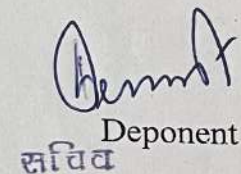 Deponent
सचिव